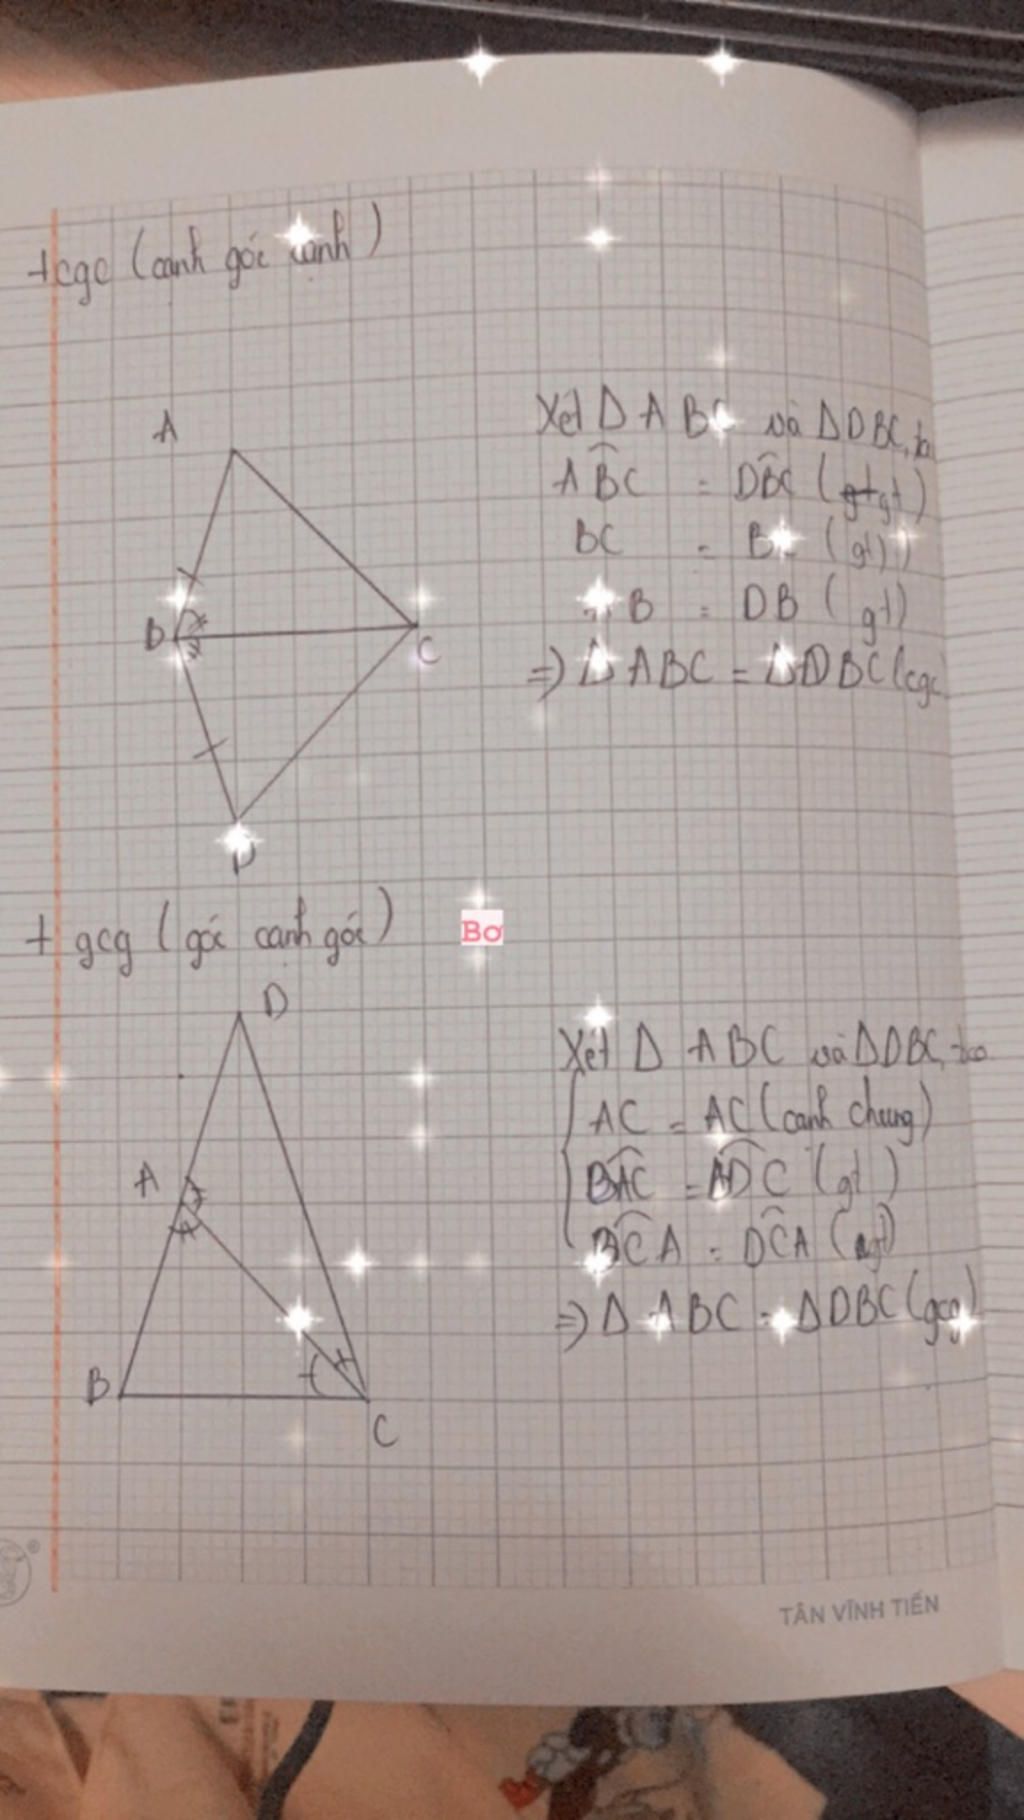 + cgc (cạnh góc cạnh)
Xét Δ ABC và Δ DBC, ta
A
ABC = DBC (gt)
BC = BC (gt)
B = DB (gt)
B
C
=> Δ ABC = Δ DBC (cgc
D
+ gcg (góc cạnh góc)
Bơ
D
Xét Δ ABC và Δ DBC, ta
AC = AC (cạnh chung)
A
BAC = ADC (gt)
BCA = DCA (gt)
=> Δ ABC = Δ DBC (gcg)
B
C
TÂN VĨNH TIẾN